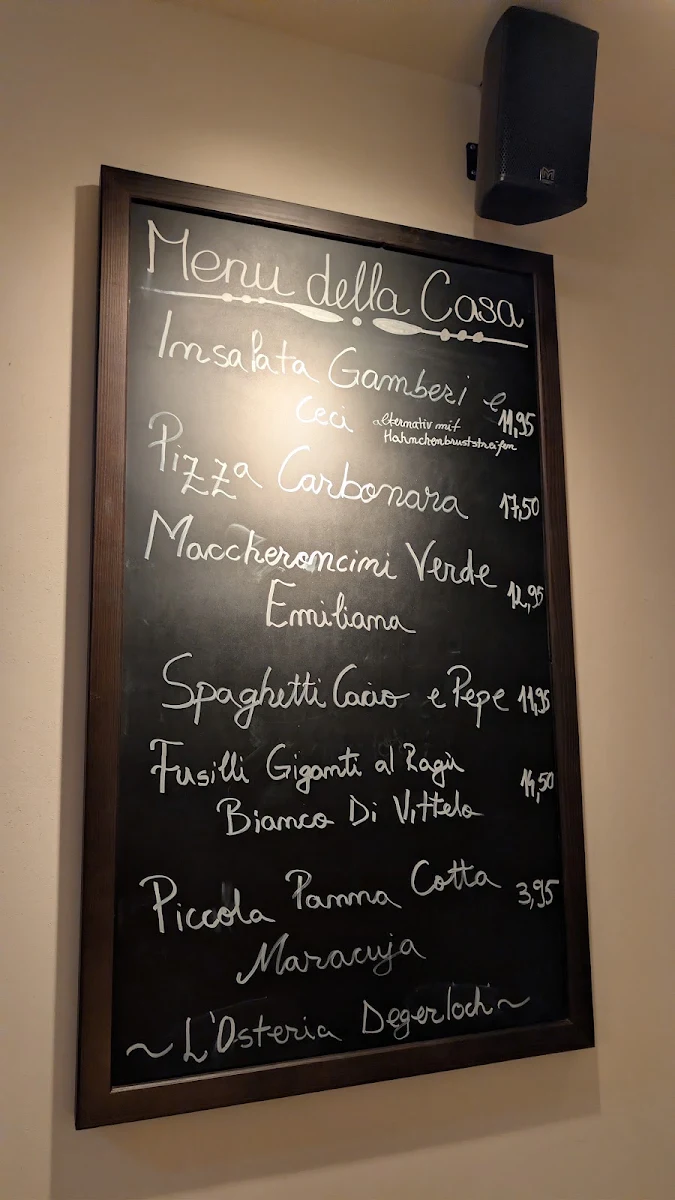 Menu della Casa
Insalata Gamberi e
Ceci alternativ mit 11,95
Hahnchenbruststreifen
Pizza Carbonara 17,50
Maccheroncini Verde
Emiliana 12,95
Spaghetti Cacio e Pepe 11,95
Fusilli Giganti al Ragù
Bianco Di Vittelo 14,50
Piccola Panna Cotta 3,95
Maracuja
~ L'Osteria Degerloch ~